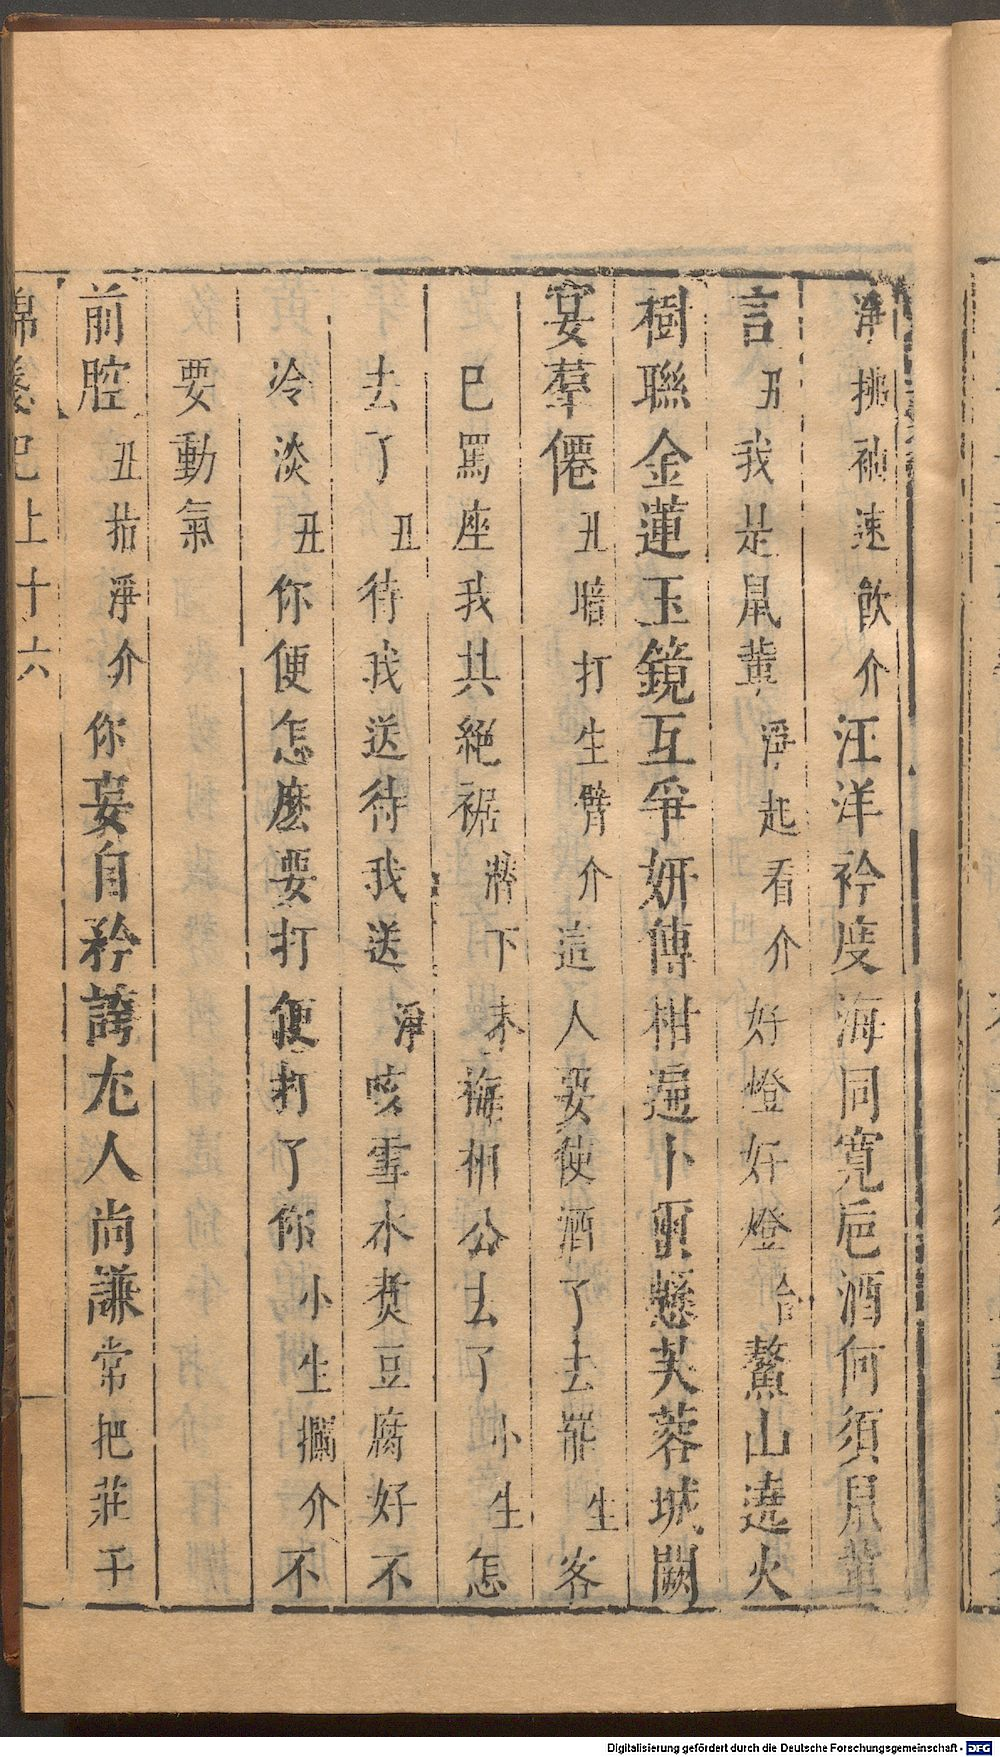 淨挑禎速飲介汪洋衿度海同寬巵酒何須鼠輩
言丑我是鼠輩淨起看介好燈好燈合鰲山遶火
樹聯金蓮玉鏡互爭妍傳柑遍卜重懸芙蓉城闕
宴羣僊丑暗打生臂介這人要使酒了去罷生客
已罵座我共絕裾濟下末梅相公去了小生怎
去了丑待我送待我送淨咳雪水煑豆腐好不
冷淡丑你便怎麽要打便打了你小生攔介不
要動氣
前腔丑指淨介你妄自矜誇尢人尚謙常把莊子
錦箋記上十六
Digitalisierung gefördert durch die Deutsche Forschungsgemeinschaft - DFG